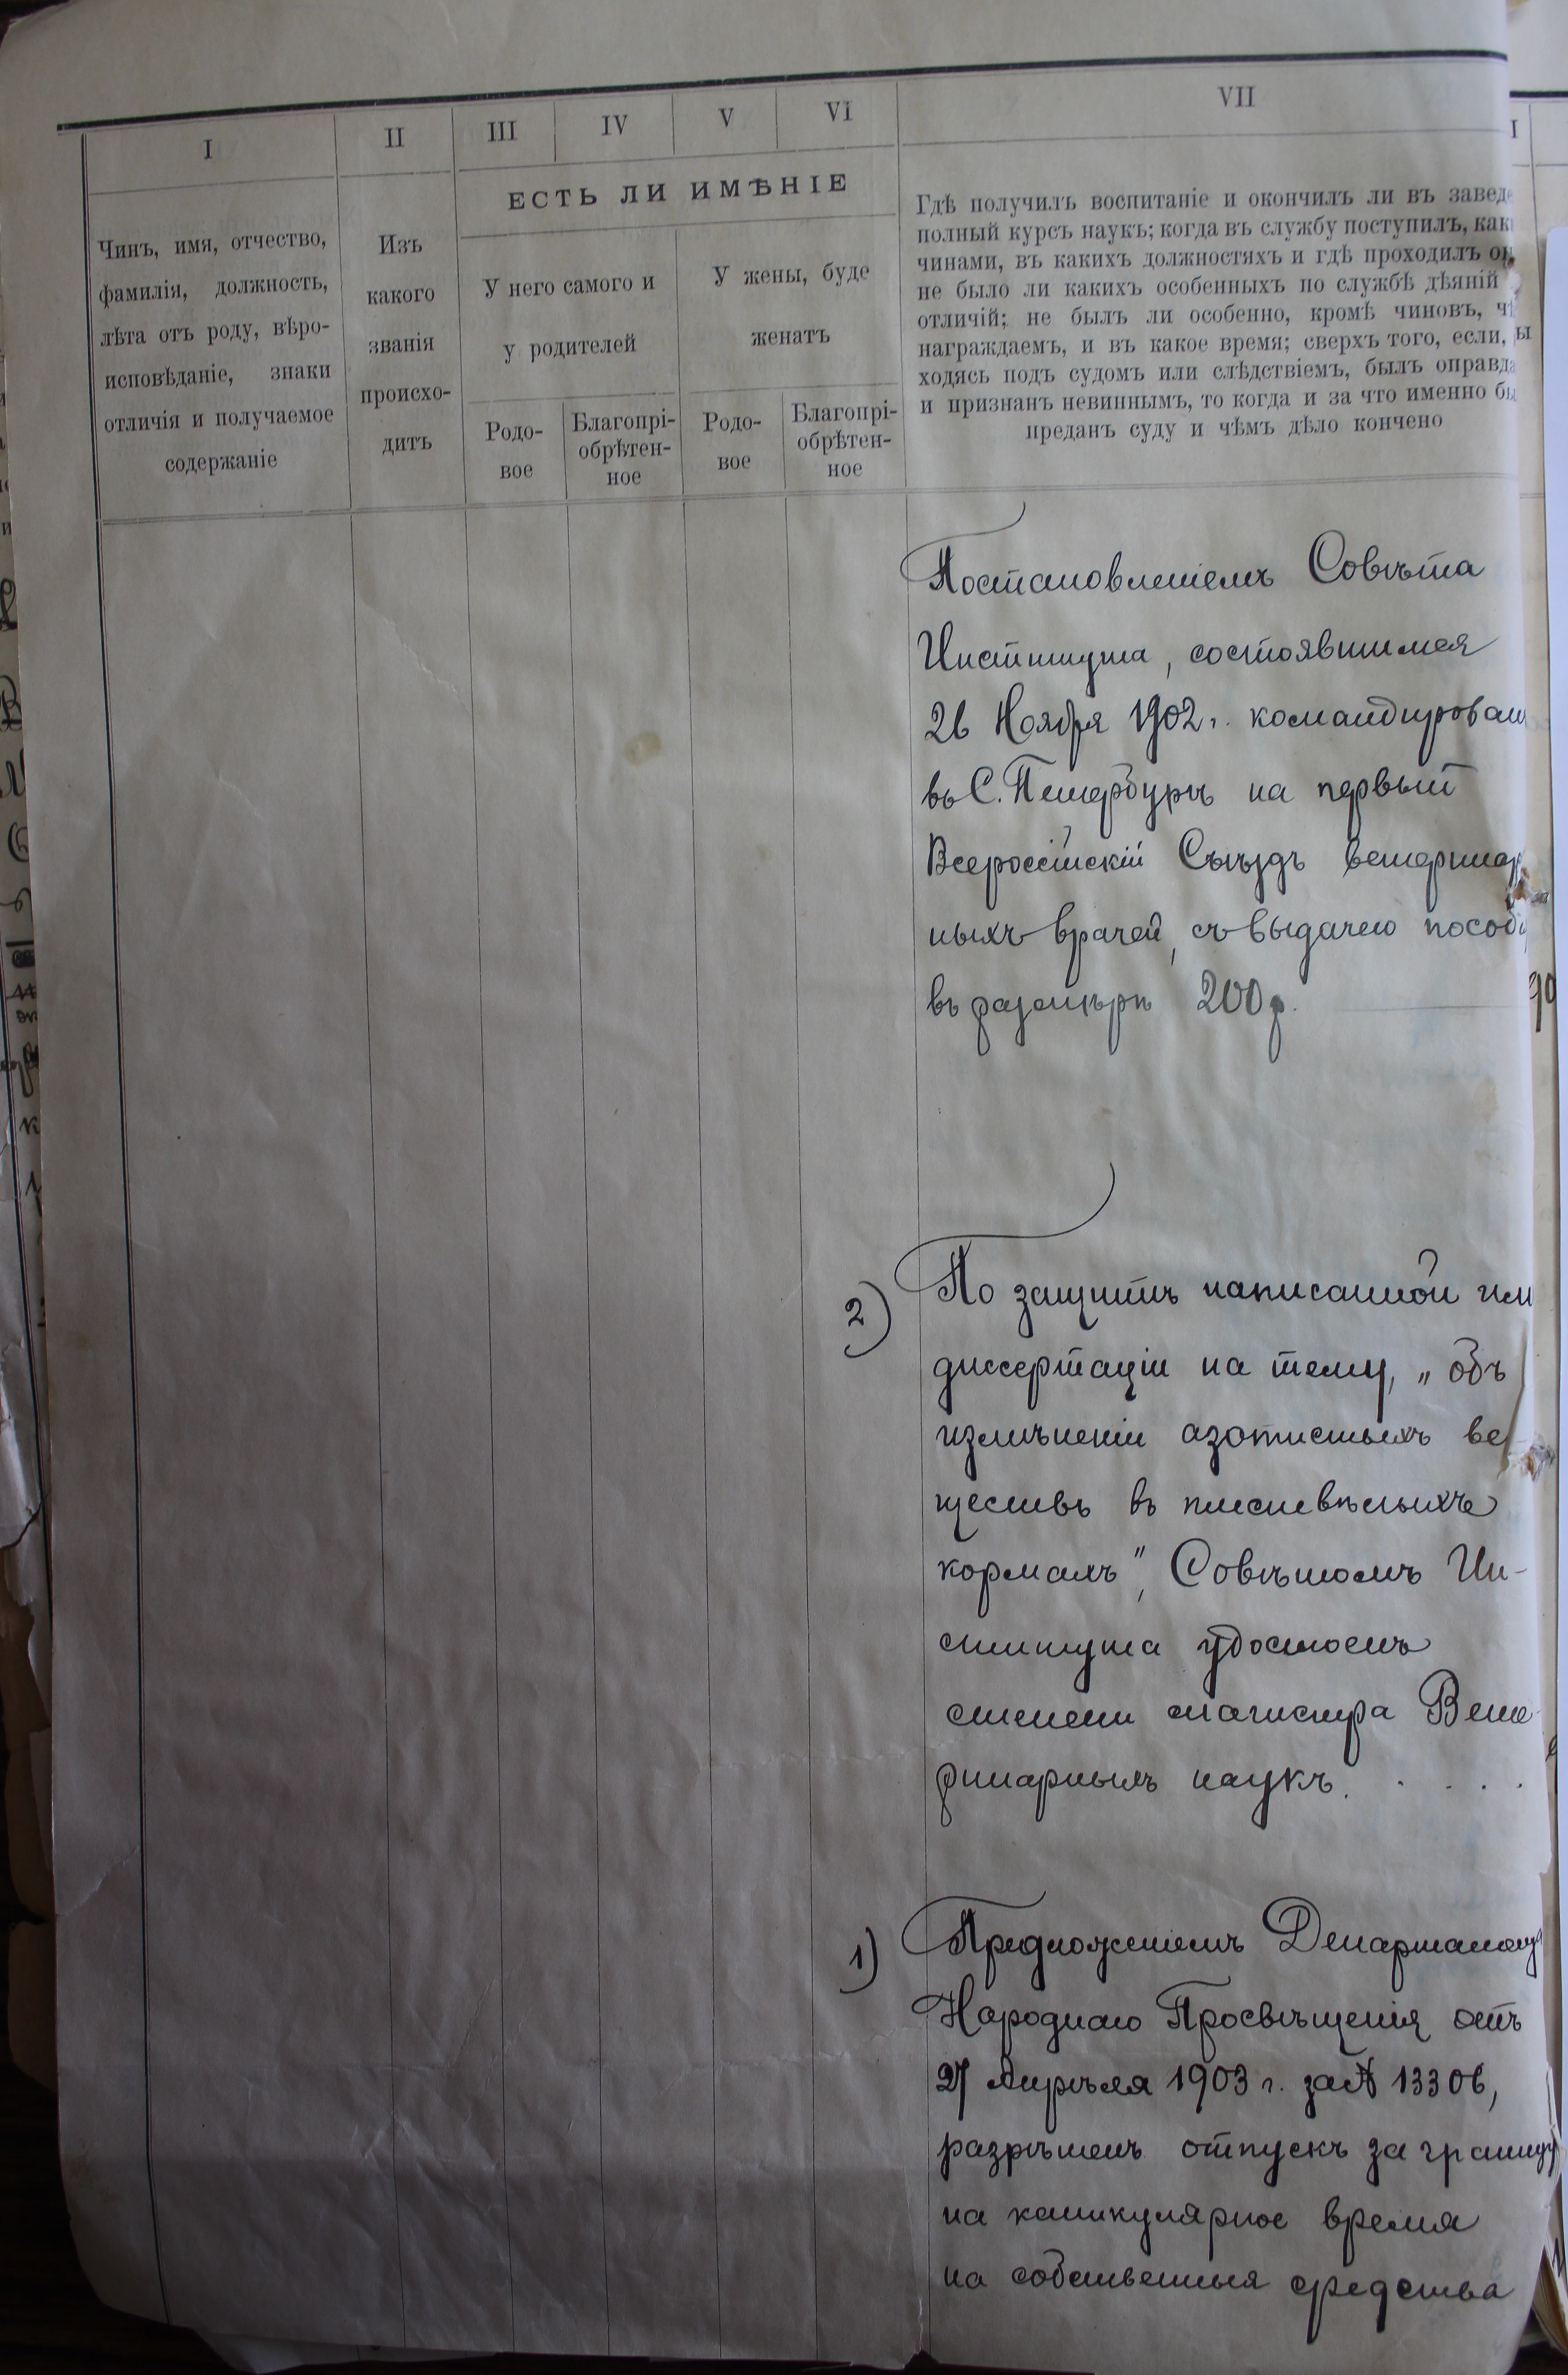 I
II
III
IV
V
VI
VII
ЕСТЬ ЛИ ИМѢНІЕ
Чинъ, имя, отчество,
фамилія, должность,
лѣта отъ роду, вѣро-
исповѣданіе, знаки
отличія и получаемое
содержаніе
Изъ
какого
званія
происхо-
дитъ
У него самого и
у родителей
У жены, буде
женатъ
Родо-
вое
Благопрі-
обрѣтен-
ное
Родо-
вое
Благопрі-
обрѣтен-
ное
Гдѣ получилъ воспитаніе и окончилъ ли въ завед
полный курсъ наукъ; когда въ службу поступилъ, как
чинами, въ какихъ должностяхъ и гдѣ проходилъ
не было ли какихъ особенныхъ по службѣ дѣяній
отличій; не былъ ли особенно, кромѣ чиновъ,
награждаемъ, и въ какое время; сверхъ того, если,
ходясь подъ судомъ или слѣдствіемъ, былъ оправд
и признанъ невиннымъ, то когда и за что именно
преданъ суду и чѣмъ дѣло кончено
Постановленіемъ Совѣта
Института, состоявшимся
26 Ноября 1902 г. командирован
въ С. Петербургъ на первый
Всероссійскій Съѣздъ ветеринар
ныхъ врачей, съ выдачею пособі
въ размѣрѣ 200 р.
2) По защитѣ написанной им
диссертаціи на тему, „объ
измѣненіи азотистыхъ ве
ществъ въ плесневѣлыхъ
кормахъ", Совѣтомъ Ин-
ститута удостоенъ
степени магистра Вете-
ринарныхъ наукъ. . . . .
1) Предложеніемъ Департамен
Народнаго Просвѣщенія отъ
27 Апрѣля 1903 г. за № 13306,
разрѣшенъ отпускъ за границу
на каникулярное время
на собственныя средства